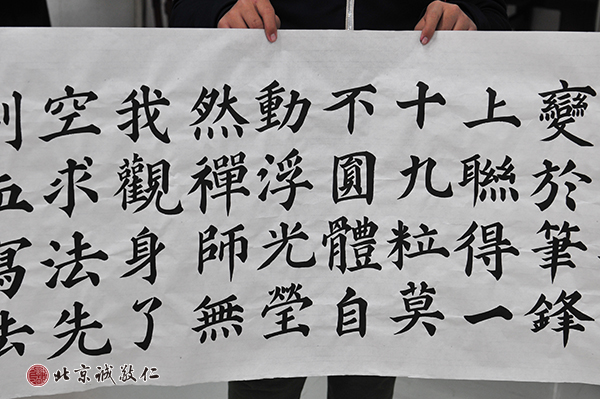 變於筆鋒
上聯得一
十九粒莫
不圓體自
動浮光瑩
然禪師無
我觀身了
空求法先
寫法
北京誠敬仁